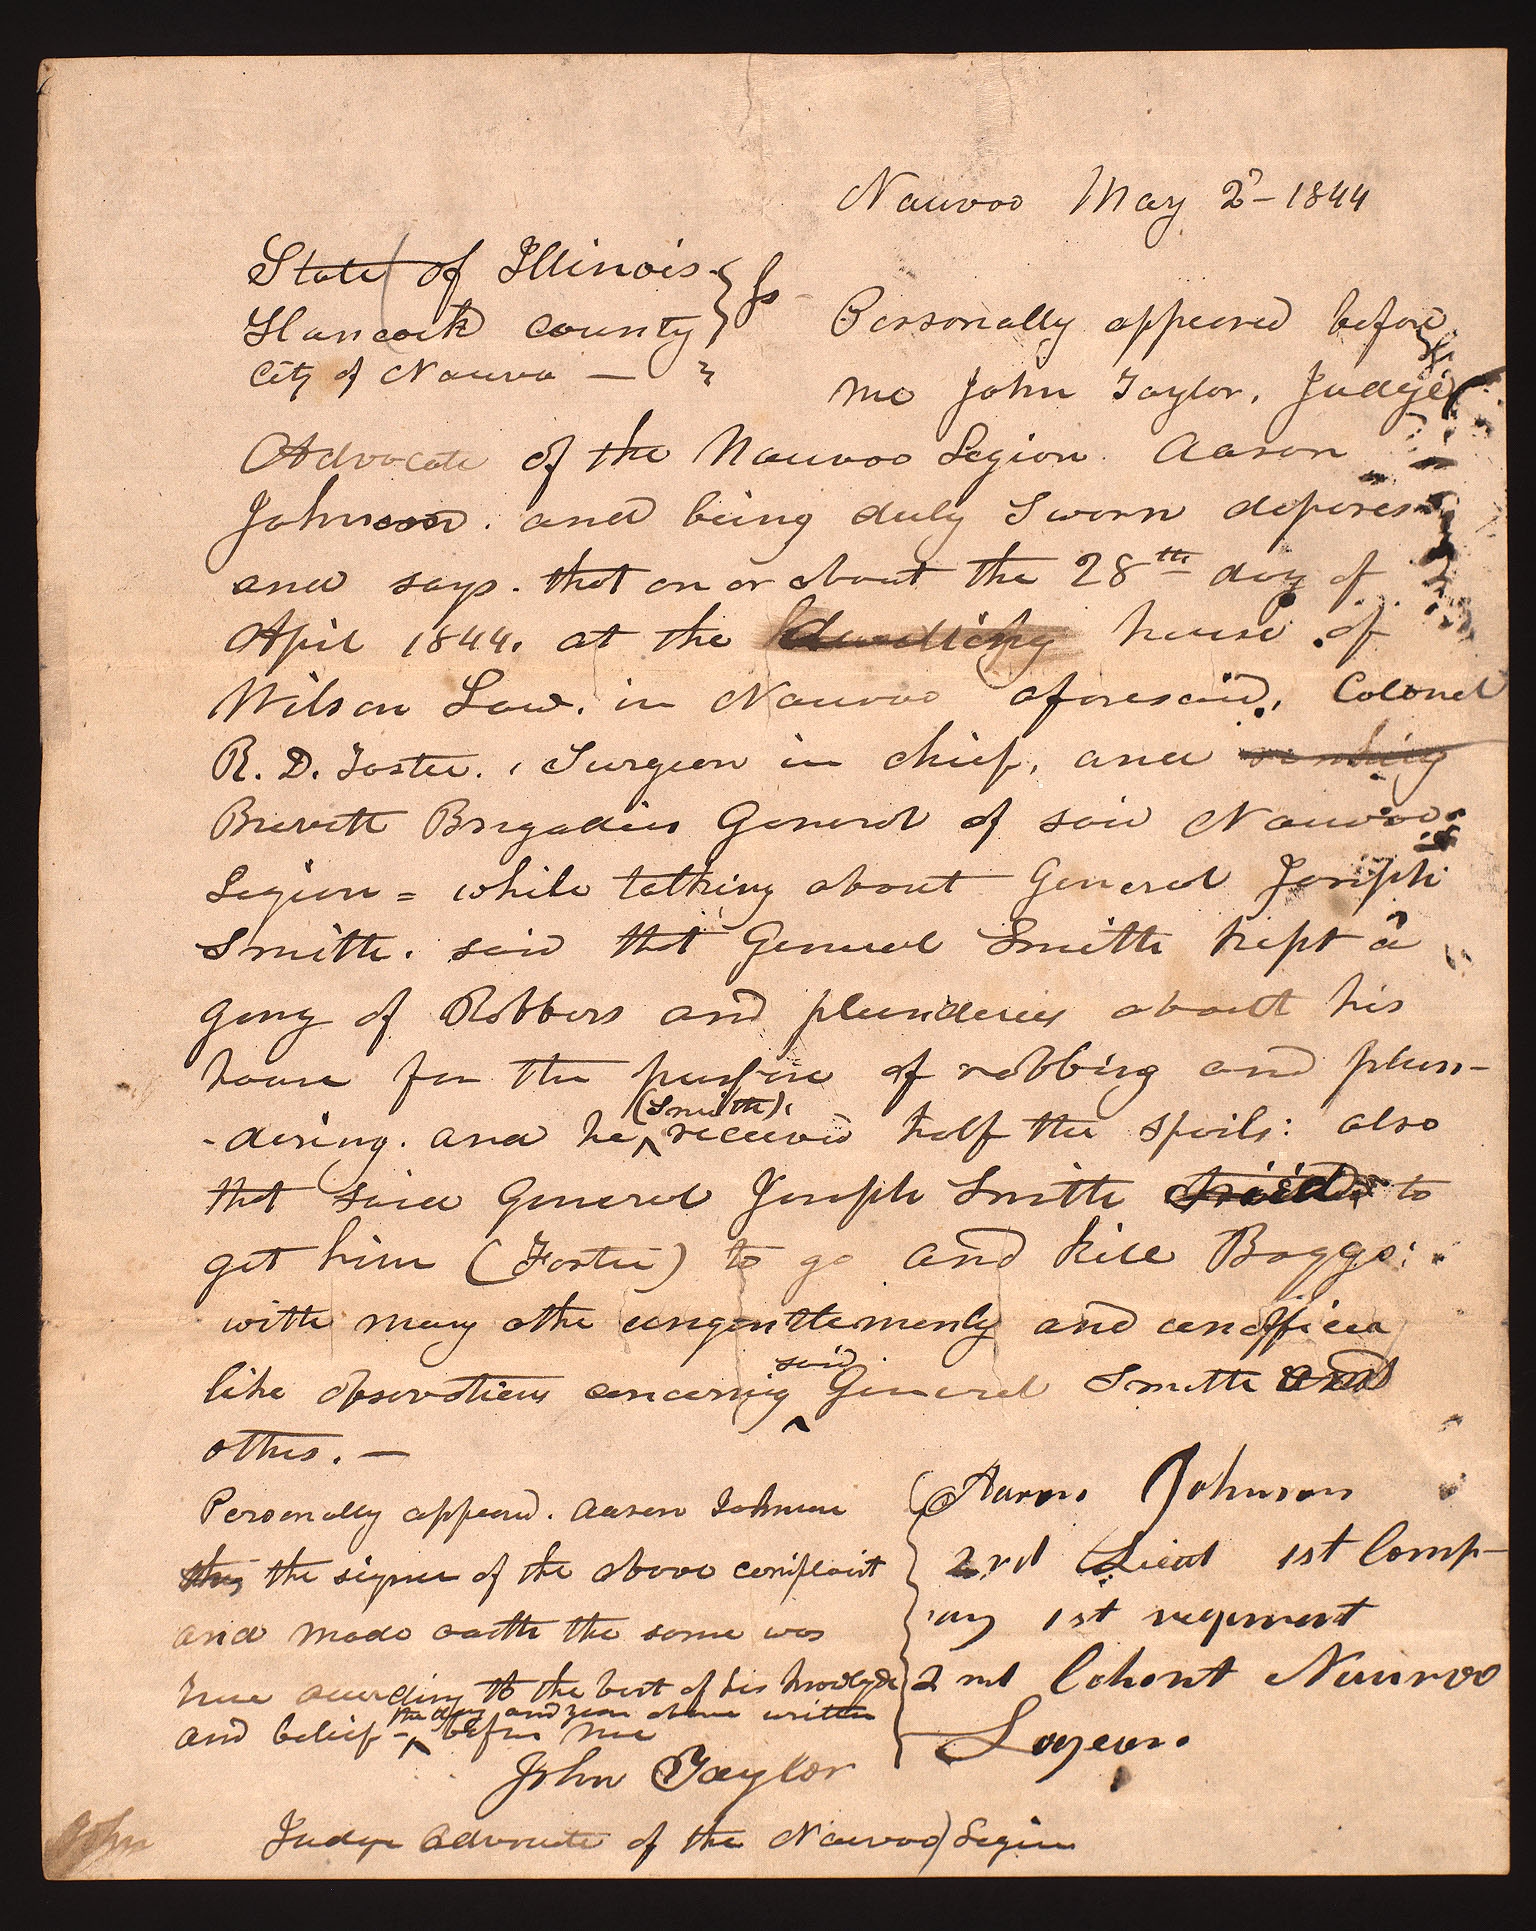 Nauvoo May 2d – 1844
State of Illinois } ss
Hancock County } Personally appeared before
City of Nauvoo —
me John Taylor, Judge
Advocate of the Nauvoo Legion Aaron
Johnson. and being duly Sworn deposes
and says. that on or about the 28th day of
April 1844. at the dwelling house of
Wilson Law. in Nauvoo aforesaid, Colonel
R. D. Foster., Surgeon in chief, and ranking
Brevett Brigadier General of said Nauvoo
Legion = while talking about General Joseph
Smith. said that General Smith kept a
gang of Robbers and plunderers about his
house for the purpose of robbing and plun-
(Smith),
-dering. and he ^ received half the spoils: also
that said General Joseph Smith tried to
get him (Foster) to go and kill Boggs:
with many othe ungentlemanly and unofficer
said
like observations concerning ^ General Smith and
others. —
Personally appeard. Aaron Johnson
the signer of the above complaint
and made oath the same was
true according to the best of his knowledge
the day and year above written
and belief - ^ before me
John Taylor
Judge Advocate of the Nauvoo Legion
Aaron Johnson
2nd Lieut 1st Comp-
any 1st regiment
2nd Cohort Nauvoo
Legeon.
John